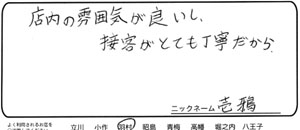 店内の雰囲気が良いし、
接客がとても丁寧だから
ニックネーム 壱鴉
よく利用されるお店を
立川 小作 羽村 昭島 青梅 高幡 堀之内 八王子